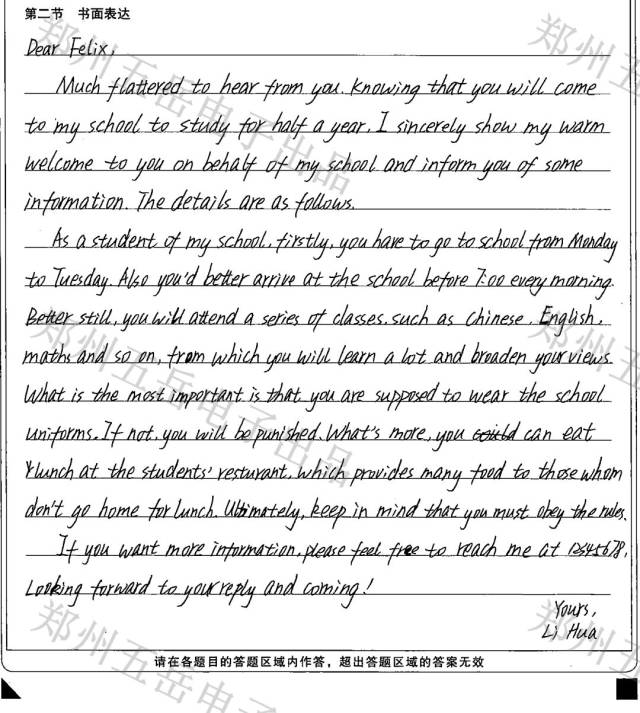 第二节 书面表达
Dear Felix,
Much flattered to hear from you. Knowing that you will come
to my school to study for half a year, I sincerely show my warm
welcome to you on behalf of my school and inform you of some
information. The details are as follows.
As a student of my school, firstly, you have to go to school from Monday
to Tuesday. Also you'd better arrive at the school before 7:00 every morning.
Better still, you will attend a series of classes, such as chinese, English,
maths and so on, from which you will learn a lot and broaden your views.
What is the most important is that you are supposed to wear the school
uniforms. If not, you will be punished. What's more, you could can eat
lunch at the students' resturant, which provides many food to those whom
don't go home for lunch. Ultimately, keep in mind that you must obey the rules.
If you want more information, please feel free to reach me at 12345678,
Looking forward to your reply and coming!
Yours,
Li Hua
请在各题目的答题区域内作答，超出答题区域的答案无效
郑州五岳电子出品